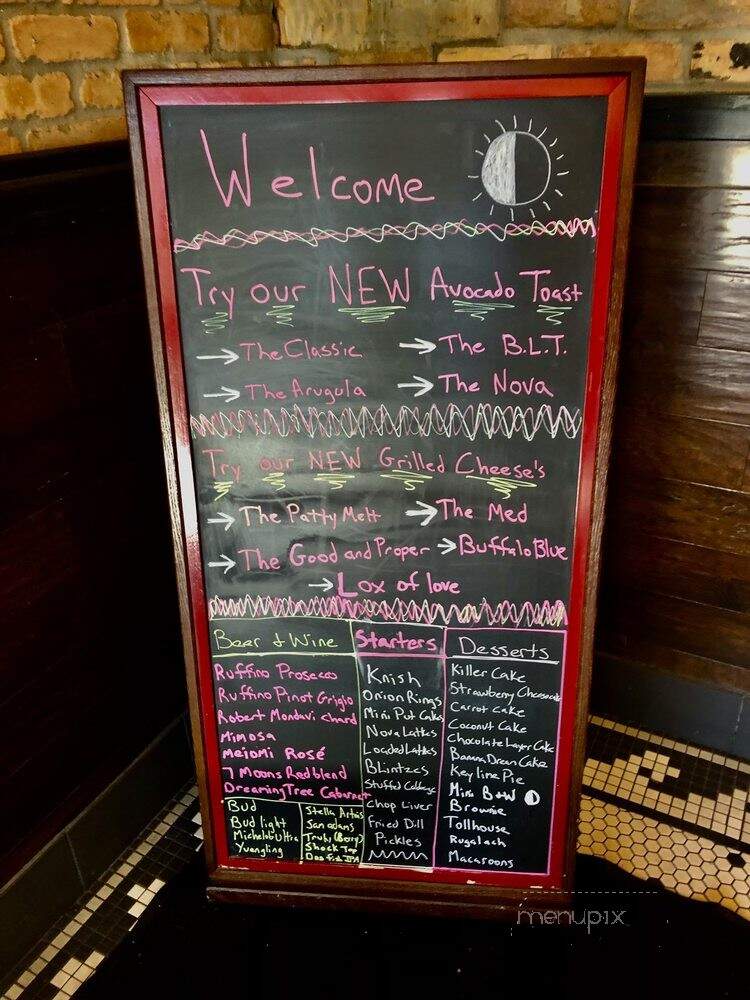 Welcome
Try our NEW Avocado Toast
→ The Classic → The B.L.T.
→ The Arugula → The Nova
Try our NEW Grilled Cheese's
→ The Patty Melt → The Med
→ The Good and Proper → Buffalo Blue
→ Lox of love
Beer & Wine
Ruffino Prosecco
Ruffino Pinot Grigio
Robert Mondavi chard
Mimosa
meiomi Rosé
7 Moons Red blend
Dreaming Tree Cabernet
Bud
Bud light
Michelob Ultra
Yuengling
Stella Artois
Sam adams
Truly (Berry)
Shock Top
Starters
Knish
Onion Rings
Mini Pot Cakes
Nova Latkes
Loaded Latkes
Blintzes
Stuffed Cabbage
Chop Liver
Fried Dill
Pickles
Desserts
Killer Cake
Strawberry Cheesecake
Carrot Cake
Coconut Cake
Chocolate Layer Cake
Banana Dream Cake
Key lime Pie
Mini B+W
Brownie
Tollhouse
Rugalach
Macaroons
menupix